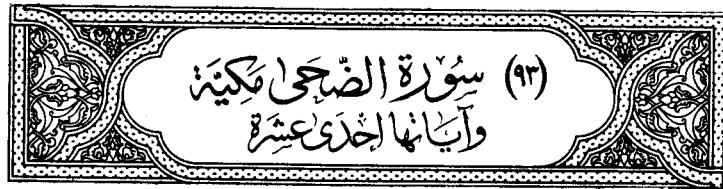 (٩٣) سُورَة الضُّحَىٰ مَكِّيَّة
وَآيَاتُهَا إِحْدَىٰ عَشْرَة